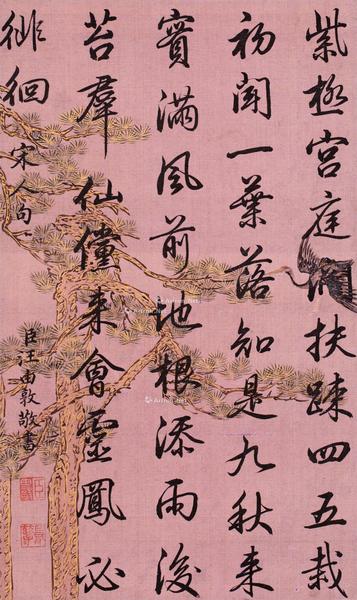 紫極宮庭濶扶踈四五栽
初聞一葉落知是九秋来
實滿風前地根添雨後
苔羣仙儻来會靈鳳必
徘徊
宋人句
臣汪由敦敬書